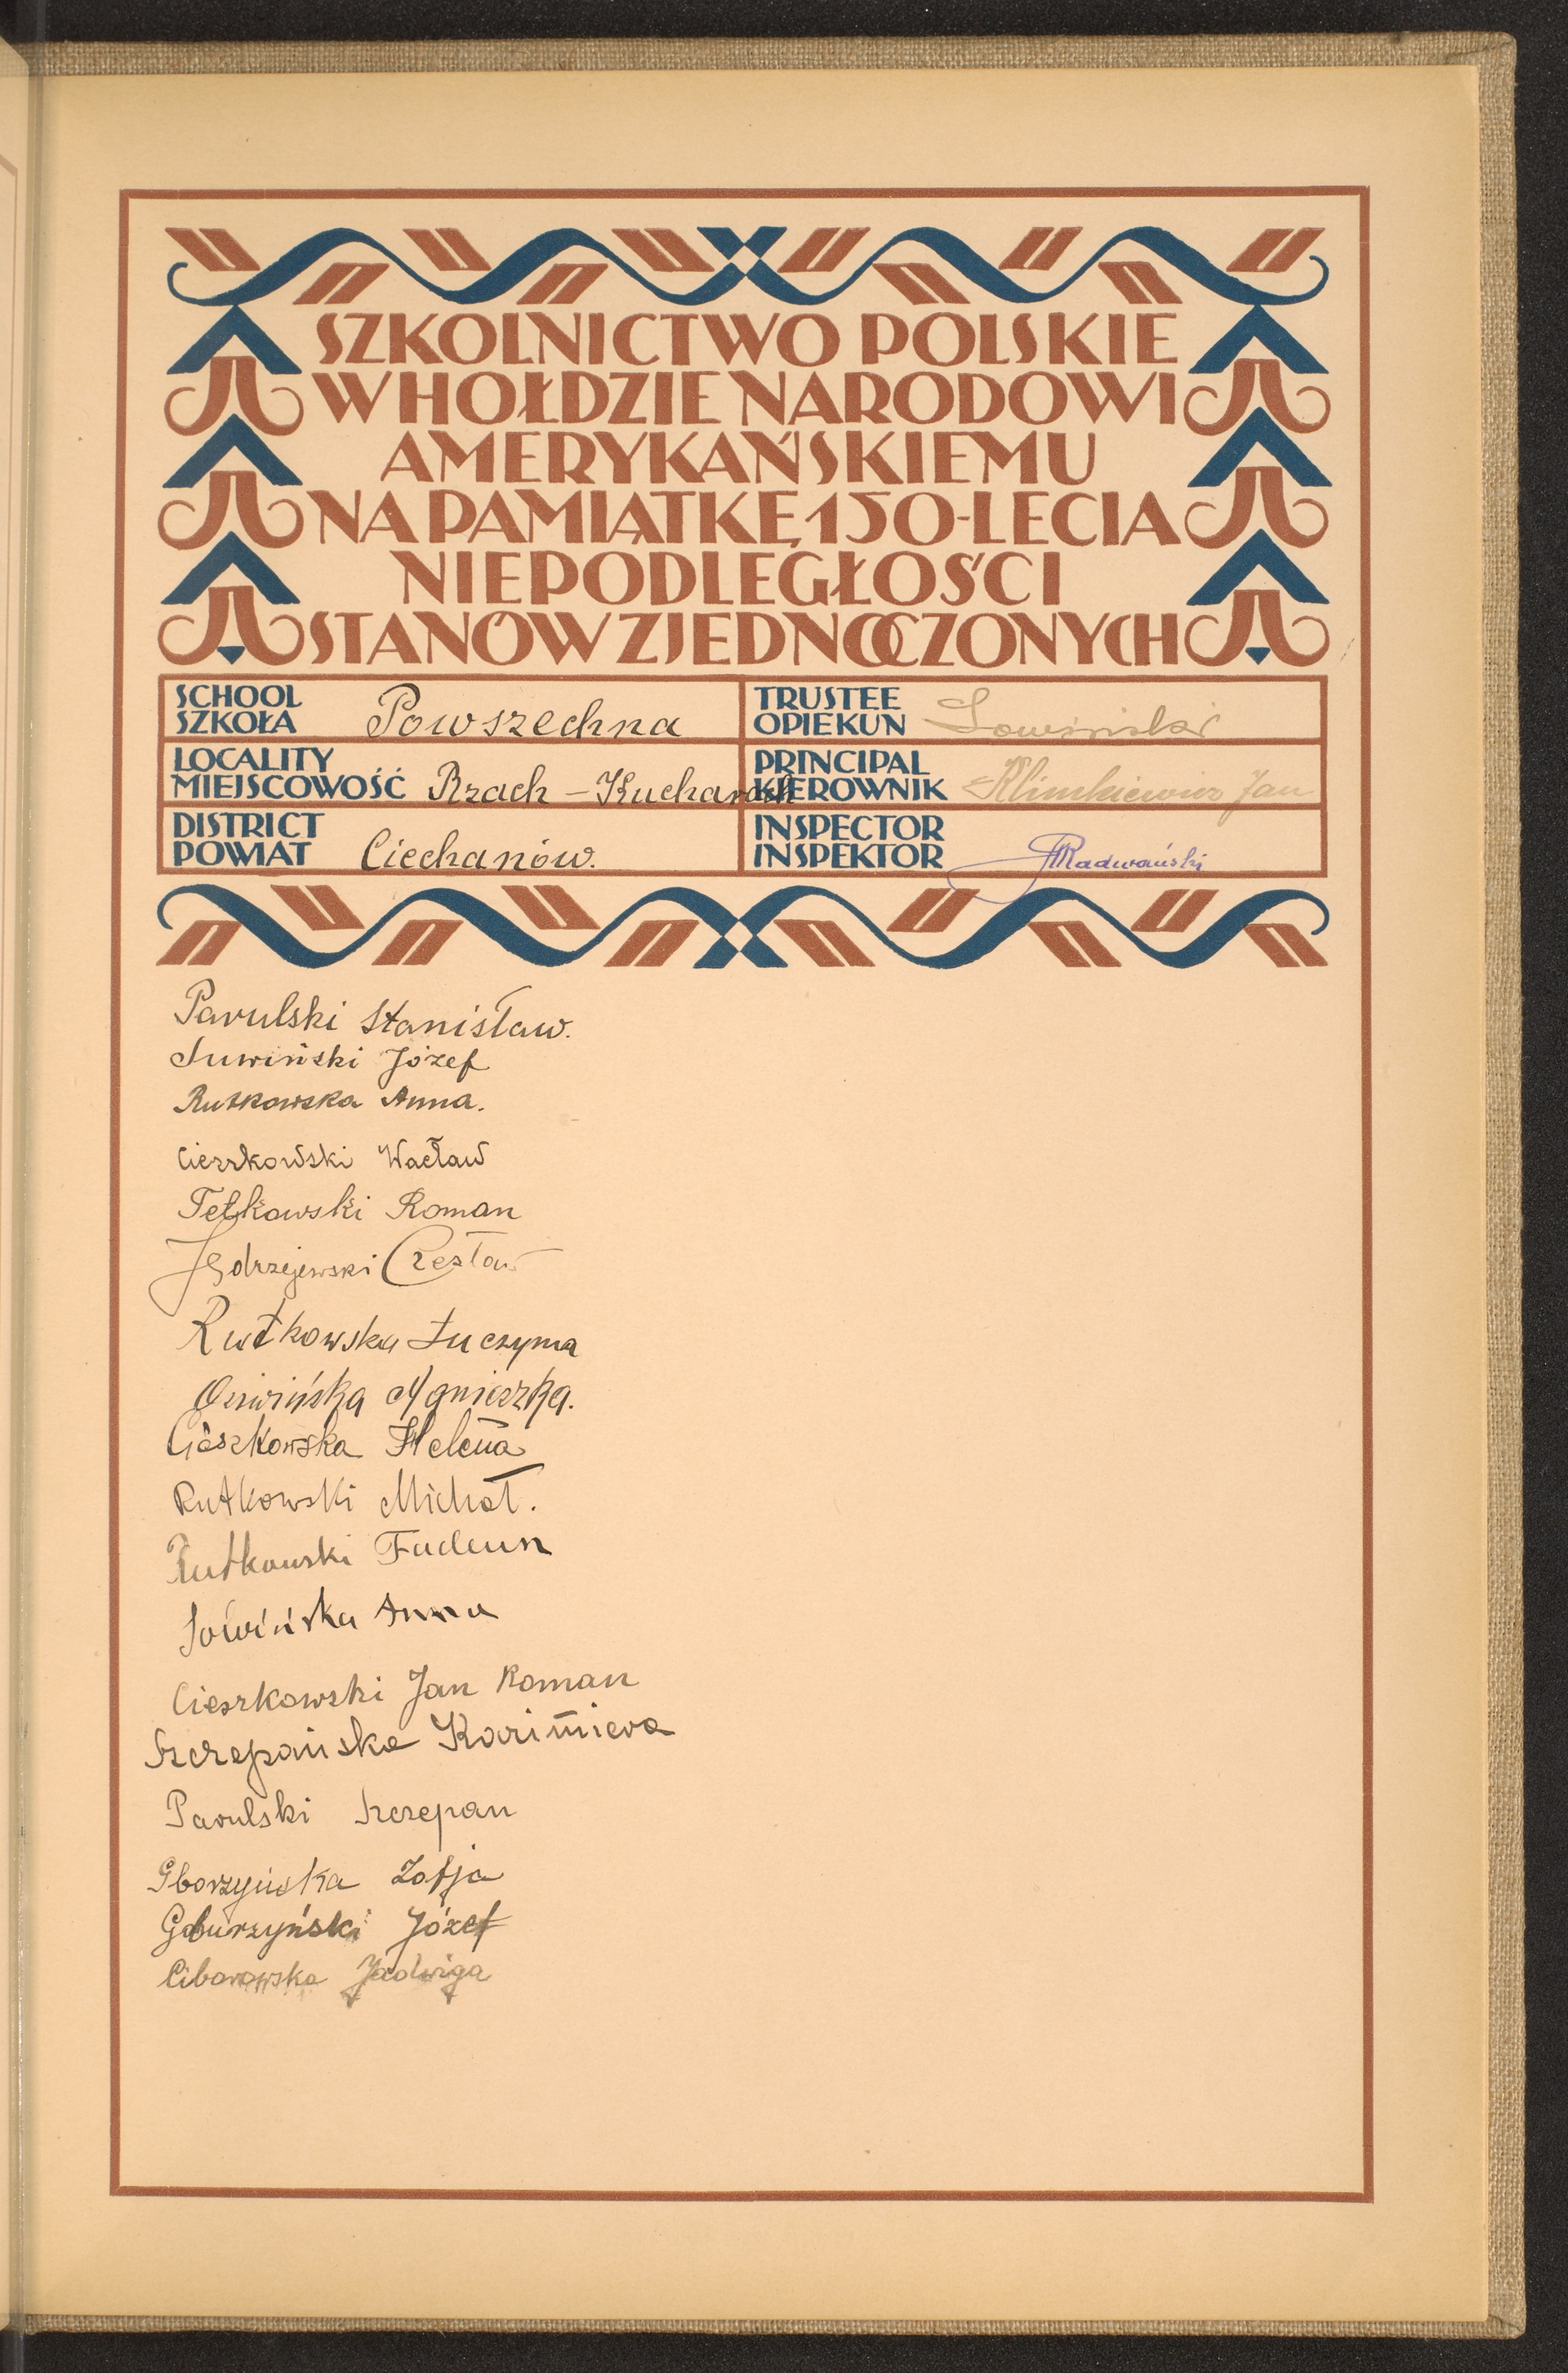 SZKOLNICTWO POLSKIE
W HOŁDZIE NARODOWI
AMERYKAŃSKIEMU
NA PAMIĄTKĘ 150-LECIA
NIEPODLEGŁOŚCI
STANÓW ZJEDNOCZONYCH
SCHOOL
SZKOŁA Powszechna
TRUSTEE
OPIEKUN Sowiński
LOCALITY
MIEJSCOWOŚĆ Rzach - Kucharach
PRINCIPAL
KIEROWNIK Klimkiewicz Jan
DISTRICT
POWIAT Ciechanów.
INSPECTOR
INSPEKTOR Radwański
Parulski Stanisław.
Suwiński Józef
Rutkowska Anna.
Cieszkowski Wacław
Tetkowski Roman
Jędrzejewski Czesław
Rutkowska Łuczyma
Agnieszka.
Cieszkowska Helena
Rutkowski Michał.
Rutkowski Fadeun
Sowińska Anna
Cieszkowski Jan Roman
Szczepańska Kazimiera
Parulski Szczepan
Gborzyńska Zofja
Goburzyński Józef
Ciborowska Jadwiga